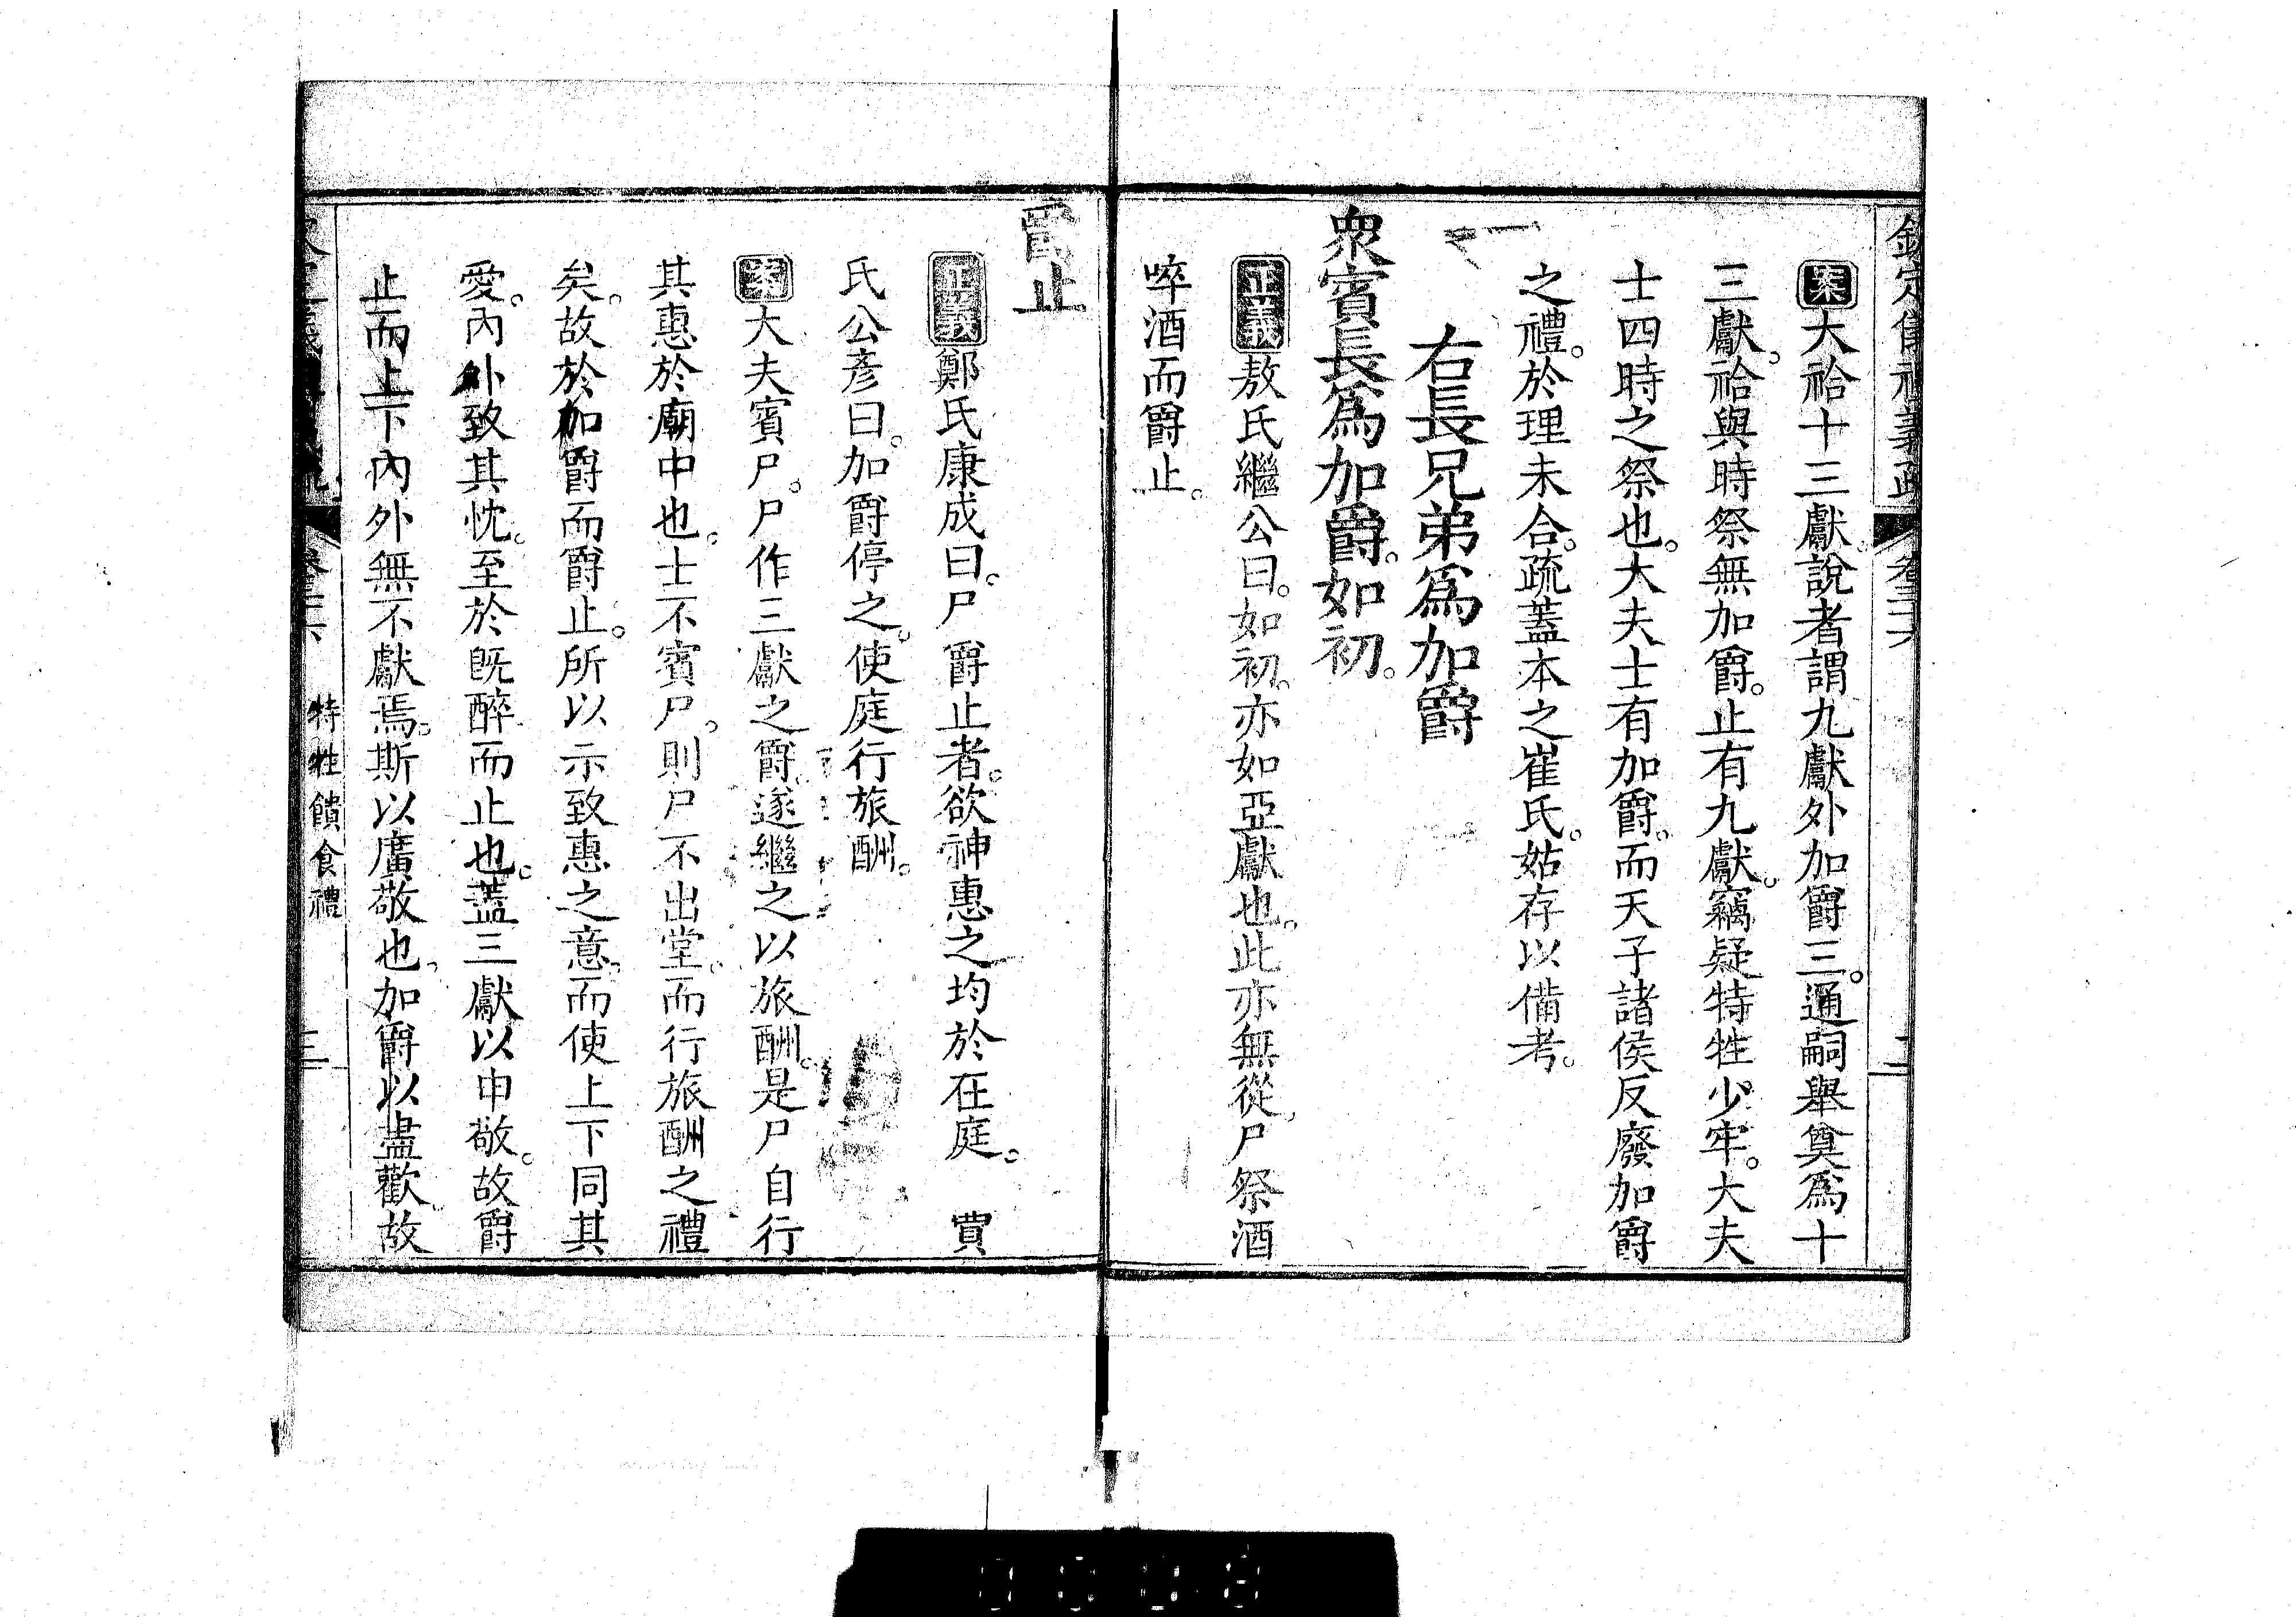 欽定儀禮義疏 卷三十六
案大祫十三獻。說者謂九獻外加爵三。通嗣舉奠爲十
三獻。祫與時祭無加爵。止有九獻。竊疑特牲少牢。大夫
士四時之祭也。大夫士有加爵。而天子諸侯反廢加爵
之禮。於理未合。疏蓋本之崔氏。姑存以備考。
右長兄弟爲加爵
衆賓長爲加爵。如初。
正義敖氏繼公曰。如初。亦如亞獻也。此亦無從。尸祭酒
啐酒而爵止。
爵止
正義鄭氏康成曰。尸爵止者。欲神惠之均於在庭。 賈
氏公彥曰。加爵停之。使庭行旅酬。
案大夫賓尸。尸作三獻之爵。遂繼之以旅酬。是尸自行
其惠於廟中也。士不賓尸。則尸不出堂。而行旅酬之禮
矣。故於加爵而爵止。所以示致惠之意。而使上下同其
愛。內外致其忱。至於旣醉而止也。蓋三獻以申敬。故爵
止而上下內外無不獻焉。斯以廣敬也。加爵以盡歡。故
特牲饋食禮 三